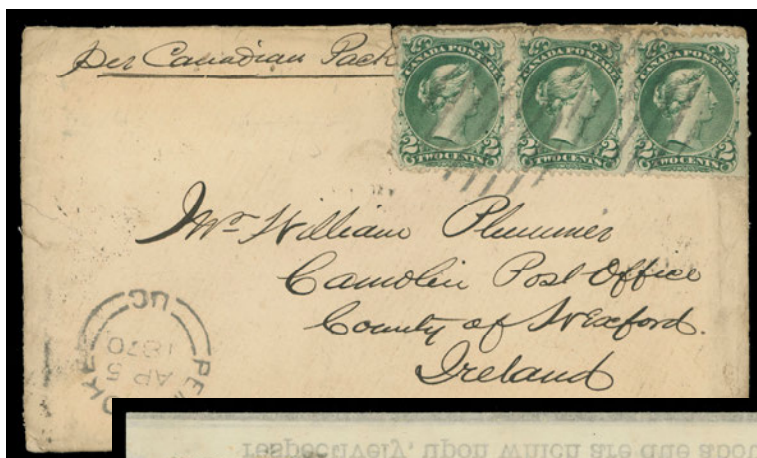 per Canadian Pack
CANADA POSTAGE CANADA POSTAGE CANADA POSTAGE
2 2 2 2 2 2
TWO CENTS TWO CENTS TWO CENTS
Mr William Plummer
Camolin Post Office
County of Wexford.
Ireland
UC
AP 5
1870
respectively, upon which are due abou